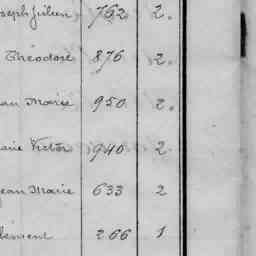 oseph Julien 762 2.
Théodore 876 2.
an Marie 950 2.
arie Victor 940 2
Jean Marie 633 2
lément 266 1